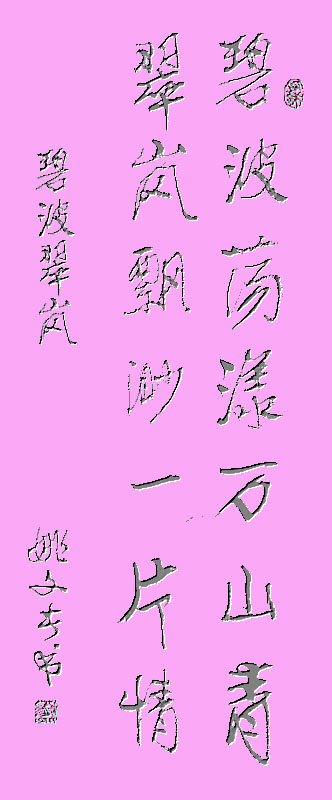 碧波荡漾万山青
翠岚飘渺一片情
碧波翠岚
姚文书